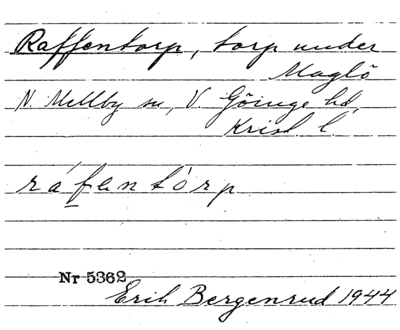 Raffentorp, torp under
Maglö
N. Mellby sn, V. Göinge hd,
Krist l
ráfentòrp
Nr 5362
Erik Bergenrud 1944